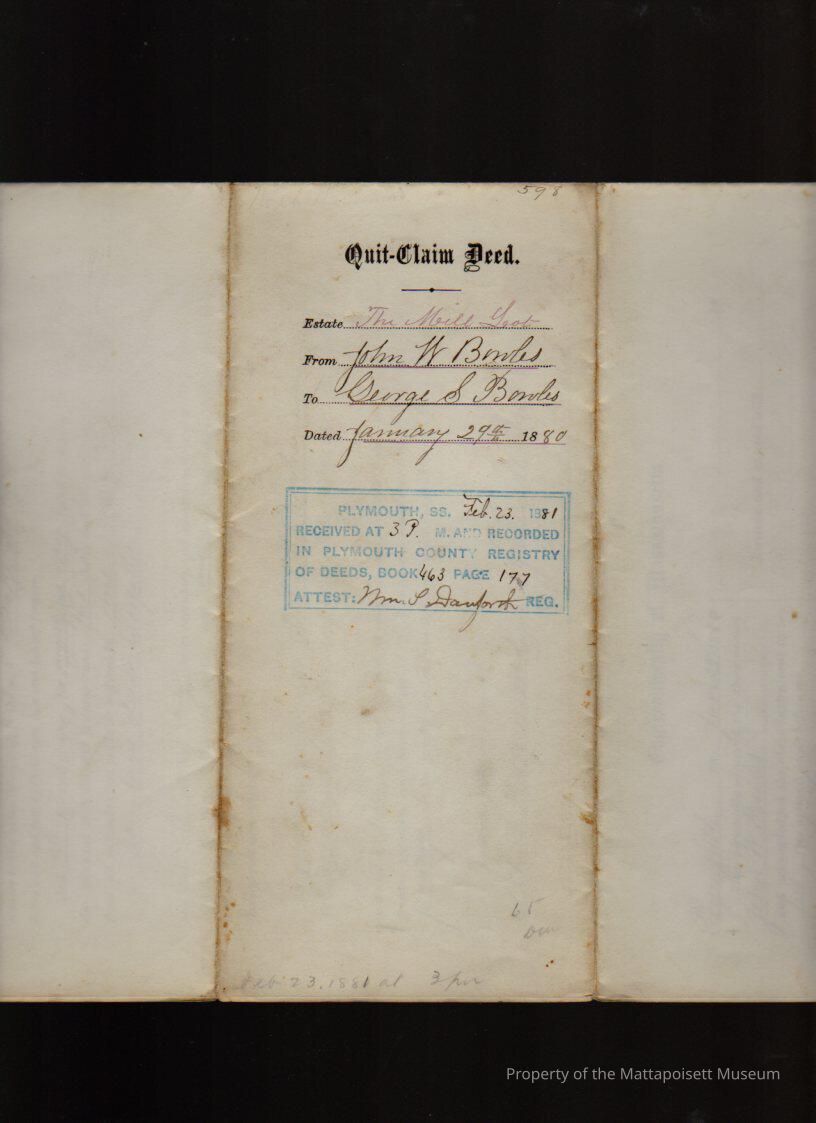 598
Quit-Claim Deed.
Estate The Mill Lot
From John W Bowles
To George S Bowles
Dated January 29th 1880
PLYMOUTH, SS. Feb. 23. 1881
RECEIVED AT 3 P. M. AND RECORDED
IN PLYMOUTH COUNTY REGISTRY
OF DEEDS, BOOK 463 PAGE 177
ATTEST: Wm. S. Danforth REG.
65
Feb 23, 1881 at 3 pm
Property of the Mattapoisett Museum